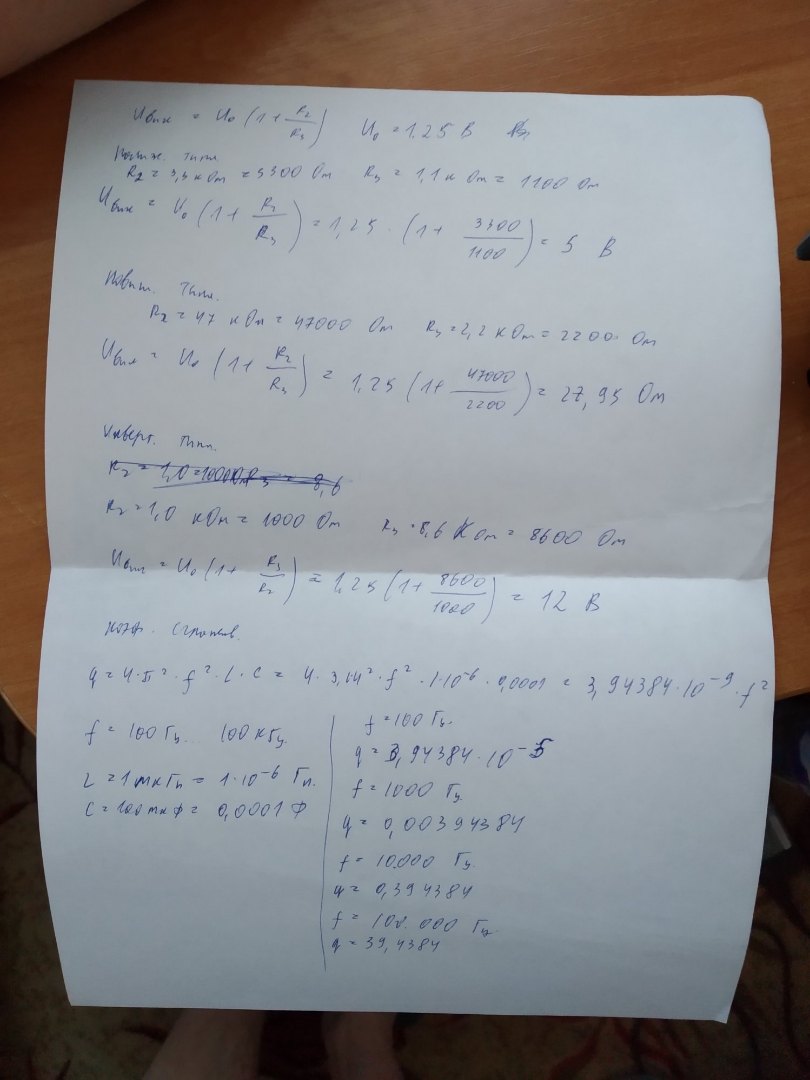 Uвих = U₀ (1+ R₂/R₃) U₀ = 1,25 В
Пониж. типа.
R₂ = 3,3 кОм = 3300 Ом R₃ = 1,1 кОм = 1100 Ом
Uвих = U₀ (1+ R₂/R₃) = 1,25 · (1+ 3300/1100) = 5 В
Повыш. типа.
R₂ = 47 кОм = 47000 Ом R₃ = 2,2 кОм = 2200 Ом
Uвих = U₀ (1+ R₂/R₃) = 1,25 (1+ 47000/2200) = 27,95 Ом
Инверт. типа.
R₂ = 1,0 = 1000 Ом R₃ = 8,6
R₂ = 1,0 кОм = 1000 Ом R₃ = 8,6 КОм = 8600 Ом
Uвих = U₀ (1+ R₃/R₂) = 1,25 (1+ 8600/1000) = 12 В
Коэф. сглажив.
q = 4·π²·f²·L·C = 4·3,14²·f²·1·10⁻⁶·0,0001 = 3,94384·10⁻⁹·f²
f = 100 Гц... 100 кГц
L = 1 мкГн = 1·10⁻⁶ Гн.
C = 100 мкФ = 0,0001 Ф
f = 100 Гц.
q = 3,94384·10⁻⁵
f = 1000 Гц
q = 0,00394384
f = 10.000 Гц.
q = 0,394384
f = 100.000 Гц.
q = 39,4384